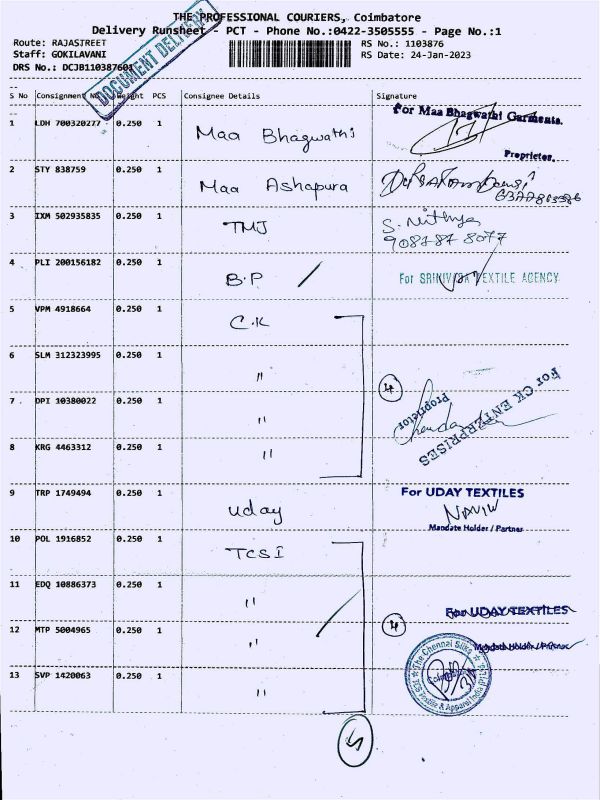 THE PROFESSIONAL COURIERS, Coimbatore
Delivery Runsheet - PCT - Phone No.:0422-3505555 - Page No.:1
Route: RAJASTREET
Staff: GOKILAVANI
DRS No.: DCJB110387601
RS No.: 1103876
RS Date: 24-Jan-2023
DOCUMENT DELIVERY
S No Consignment No Weight PCS Consignee Details Signature
1 LDH 700320277 0.250 1 Maa Bhagwathi
For Maa Bhagwathi Garments.
Proprietor.
2 STY 838759 0.250 1 Maa Ashapura
3 IXM 502935835 0.250 1 TMJ S. Nithya
9087878077
4 PLI 200156182 0.250 1 B.P For SRINIVASA TEXTILE AGENCY
5 VPM 4918664 0.250 1 C.K
6 SLM 312323995 0.250 1 "
4
7 DPI 10380022 0.250 1 "
For CK ENTERPRISES
Proprietor
8 KRG 4463312 0.250 1 "
9 TRP 1749494 0.250 1 uday
For UDAY TEXTILES
Mandate Holder / Partner
10 POL 1916852 0.250 1 TCSI
11 EDQ 10886373 0.250 1 "
For UDAY TEXTILES
12 MTP 5004965 0.250 1 "
4
Mandate Holder / Partner
13 SVP 1420063 0.250 1 "
The Chennai Silks
Coimbatore